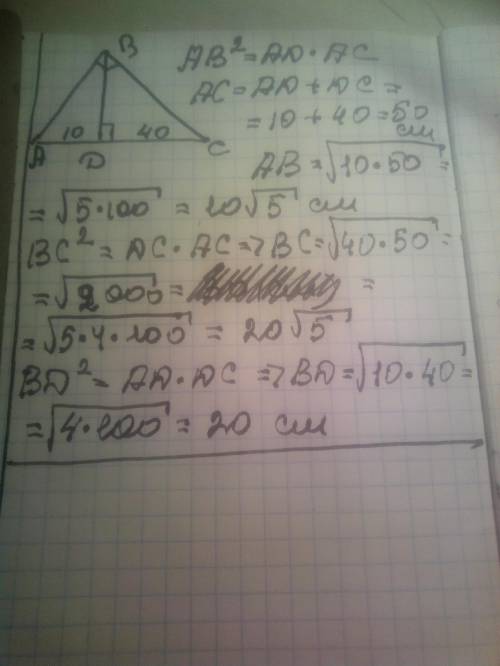 B
AB² = AD · AC
AC = AD + DC =
= 10 + 40 = 50 см
10 40
A D C
AB = √10·50 =
= √5·100 = 10√5 см
BC² = DC · AC => BC = √40·50 =
= √2000 = =
= √5·4·100 = 20√5
BD² = AD · DC => BD = √10·40 =
= √4·100 = 20 см